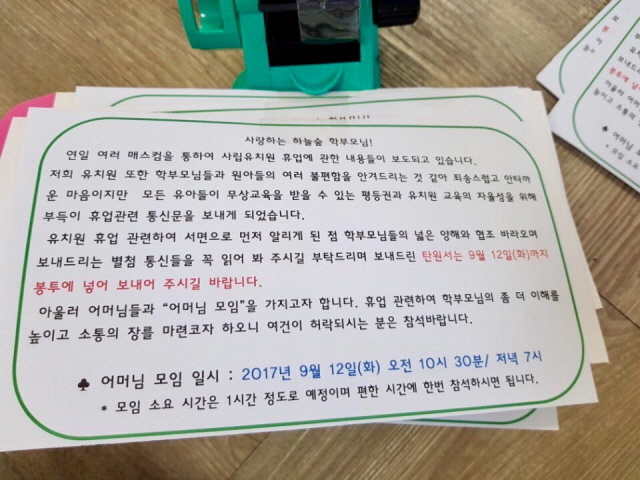 사랑하는 하늘숲 학부모님!
연일 여러 매스컴을 통하여 사립유치원 휴업에 관한 내용들이 보도되고 있습니다.
저희 유치원 또한 학부모님들과 원아들의 여러 불편함을 안겨드리는 것 같아 죄송스럽고 안타까
운 마음이지만 모든 유아들이 무상교육을 받을 수 있는 평등권과 유치원 교육의 자율성을 위해
부득이 휴업관련 통신문을 보내게 되었습니다.
유치원 휴업 관련하여 서면으로 먼저 알리게 된 점 학부모님들의 넓은 양해와 협조 바라오며
보내드리는 별첨 통신들을 꼭 읽어 봐 주시길 부탁드리며 보내드린 탄원서는 9월 12일(화)까지
봉투에 넣어 보내어 주시길 바랍니다.
아울러 어머님들과 “어머님 모임”을 가지고자 합니다. 휴업 관련하여 학부모님의 좀 더 이해를
높이고 소통의 장를 마련코자 하오니 여건이 허락되시는 분은 참석바랍니다.
♣ 어머님 모임 일시 : 2017년 9월 12일(화) 오전 10시 30분/ 저녁 7시
* 모임 소요 시간은 1시간 정도로 예정이며 편한 시간에 한번 참석하시면 됩니다.
유치
보내드리
봉투에 넣
아울러 어
높이고 소통
♣ 어머님
* 모임